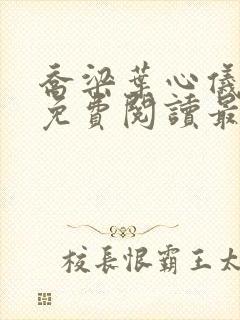 喬梁葉心儀
免費閱讀最
校長恨霸王太